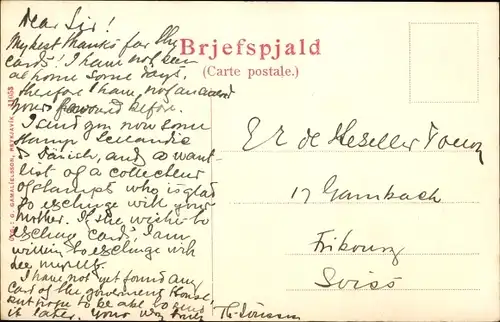 Dear Sir!
My best thanks for the
cards! I have not been
at home some days,
therefore I have not answered
your favour before.
I send you now some
stamps Icelandic
& Danish, and a want-
list of a collecteur
of stamps who is glad
to exchinge with your
mother. If she wishes to
exchinge cards, I am
willing to exchinge with
her myself.
I have not yet found any
card of the government House
but hope to be able to send
it later. Yours very truly
Brjefspjald
(Carte postale.)
de
17 Gambach
Fribourg
Suiss
G. GAMALÍELSSON, REYKJAVÍK.